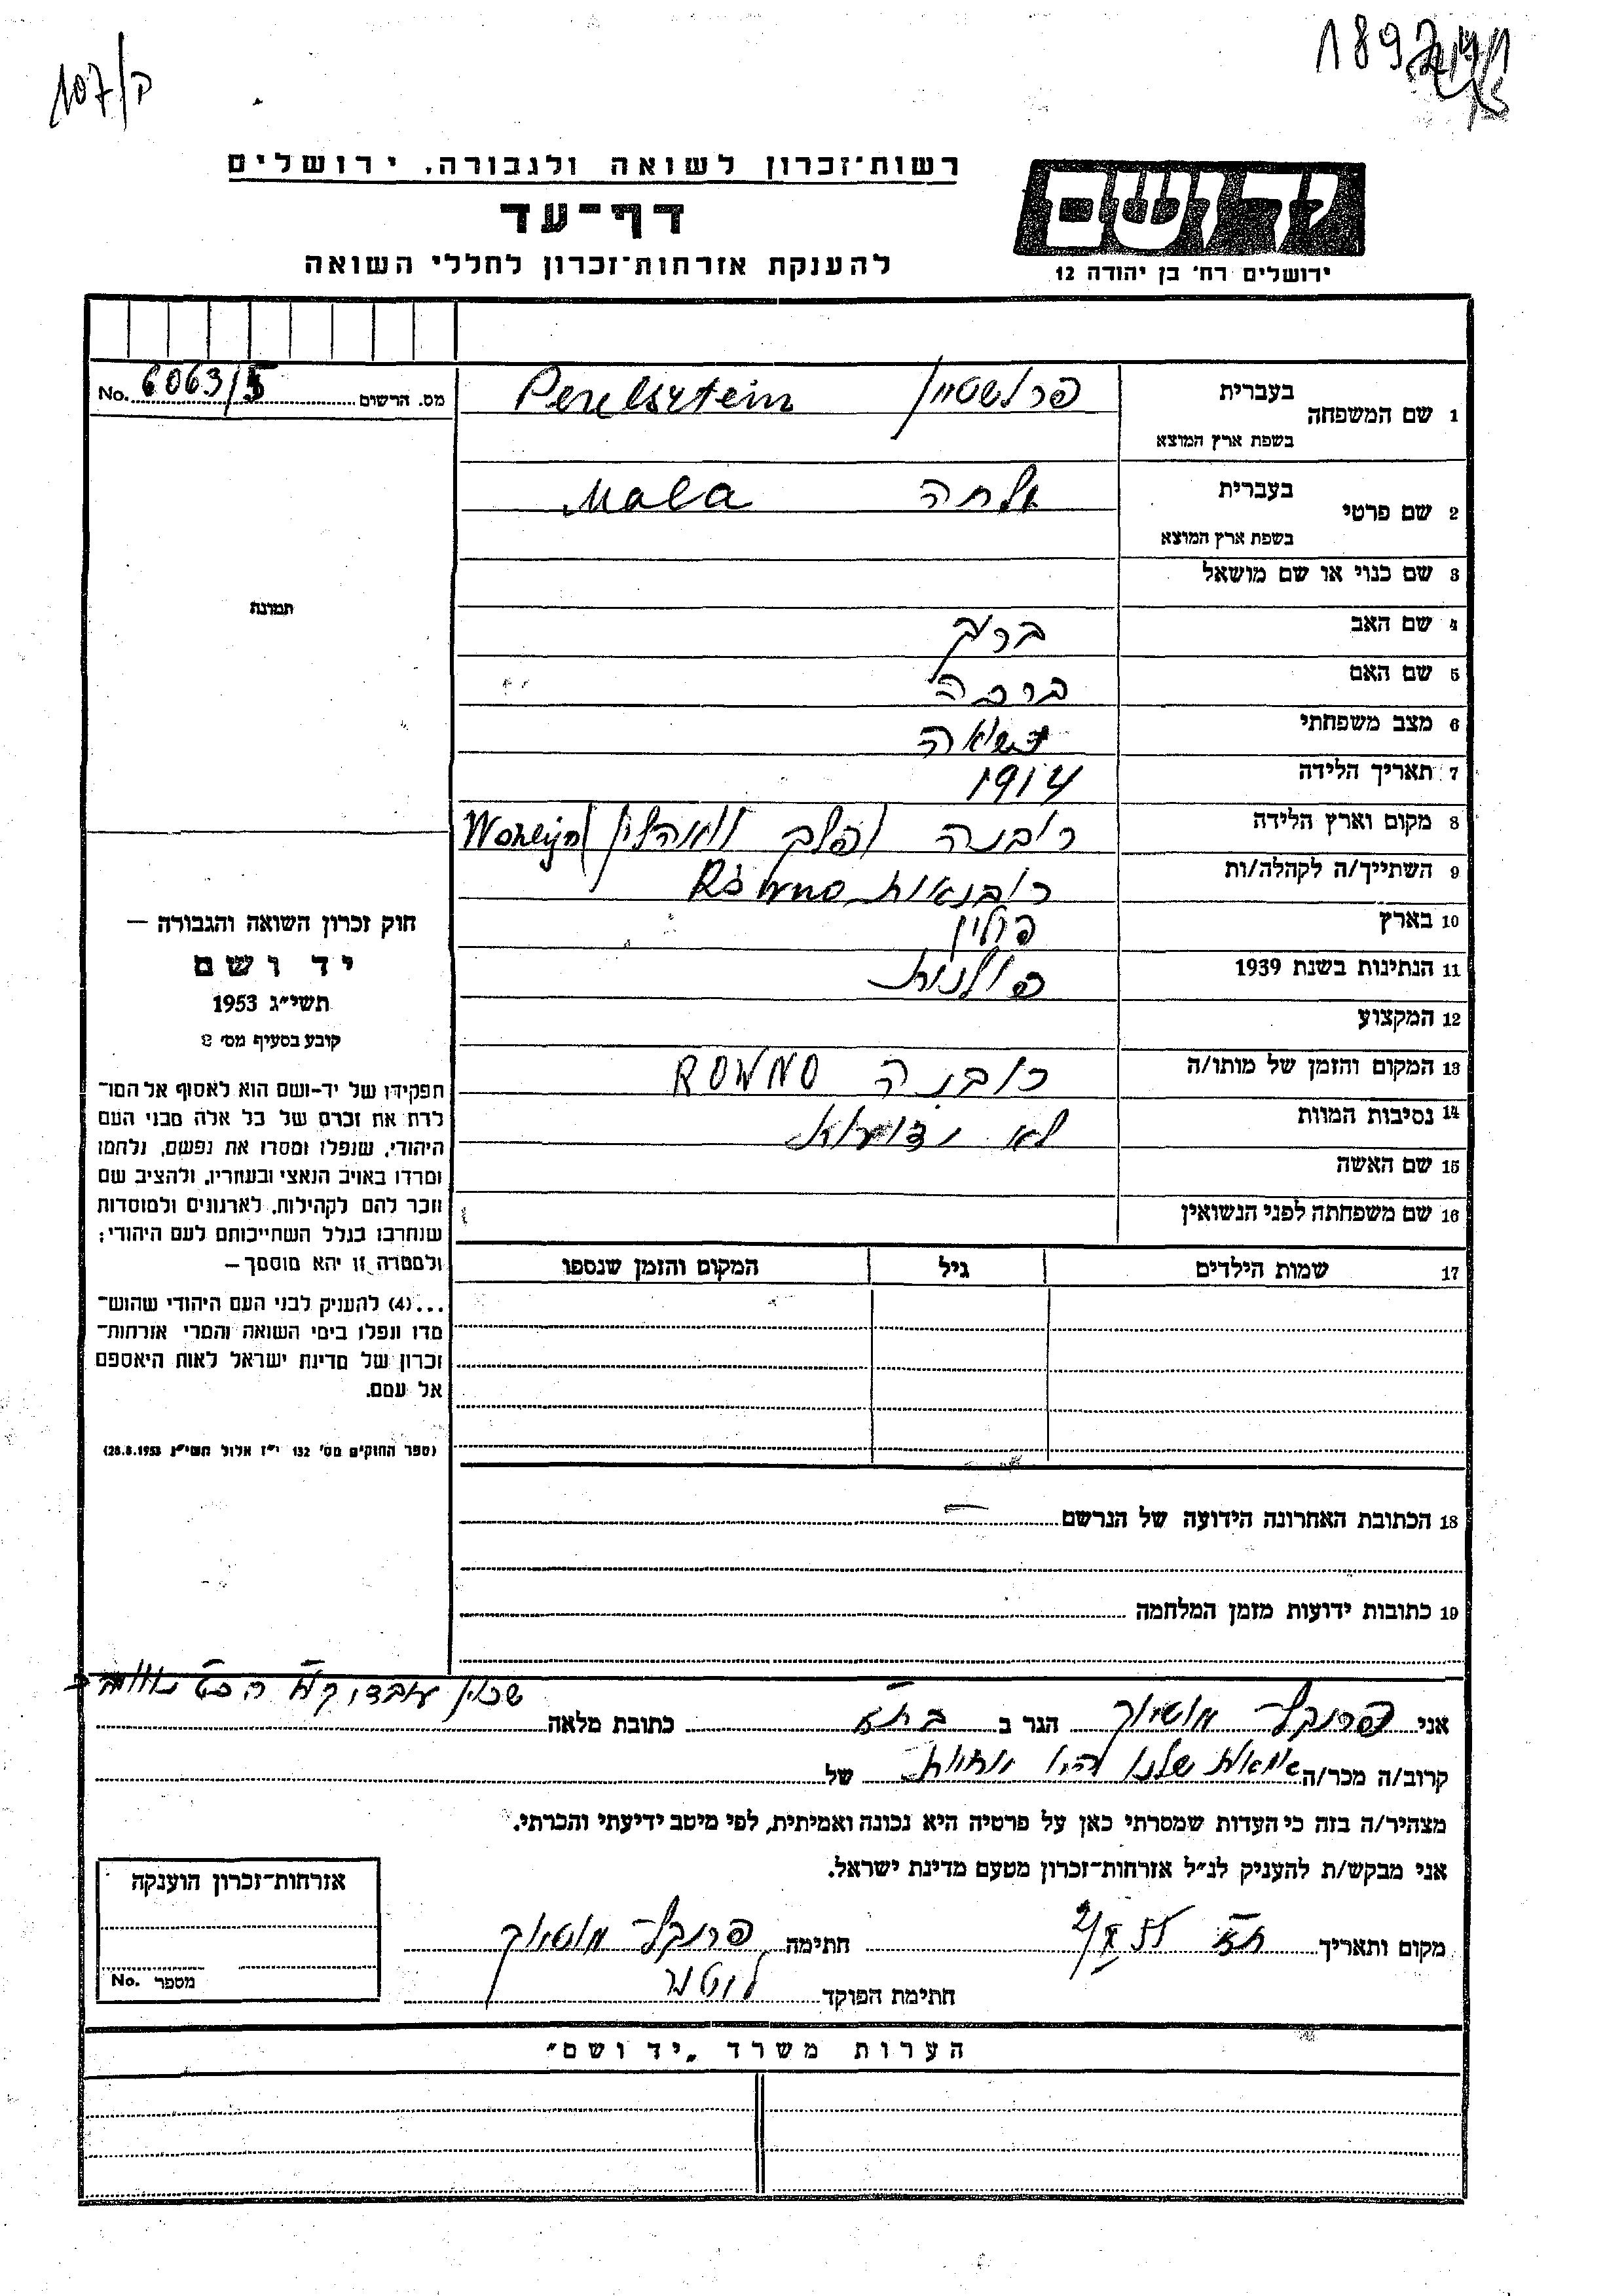 107/ק
רשות־זכרון לשואה ולגבורה, ירושלים
דף־עד
להענקת אזרחות־זכרון לחללי השואה
יד ושם
ירושלים רח' בן יהודה 12
מס. הרשום 6063/5 No.
1 שם המשפחה בעברית פרלשטיין Perelsztein
בשפת ארץ המוצא
2 שם פרטי בעברית מלחה Mala
בשפת ארץ המוצא
3 שם כנוי או שם מושאל
4 שם האב ברק
5 שם האם ברכה
6 מצב משפחתי נשואה
7 תאריך הלידה 1914
8 מקום וארץ הלידה רובנה פלך וואהלין
9 השתייך/ה לקהלה/ות Równo
10 בארץ פולין
11 הנתינות בשנת 1939 פולנית
12 המקצוע
13 המקום והזמן של מותו/ה רובנה ROWNO
14 נסיבות המוות לא
15 שם האשה
16 שם משפחתה לפני הנשואין
17 שמות הילדים גיל המקום והזמן שנספו
תמונה
חוק זכרון השואה והגבורה —
יד ושם
תשי״ג 1953
קובע בסעיף מס׳ 2
תפקידו של יד-ושם הוא לאסוף אל המו־
לדת את זכרם של כל אלה מבני העם
היהודי, שנפלו ומסרו את נפשם, נלחמו
ומרדו באויב הנאצי ובעוזריו, ולהציב שם
וזכר להם לקהילות, לארגונים ולמוסדות
שנחרבו בגלל השתייכותם לעם היהודי;
ולמטרה זו יהא מוסמך —
...(4) להעניק לבני העם היהודי שהוש־
מדו ונפלו בימי השואה והמרי אזרחות־
זכרון של מדינת ישראל לאות היאספם
אל עמם.
(ספר החוקים מס׳ 132 י״ז אלול תשי״ג 28.8.1953)
18 הכתובת האחרונה הידועה של הנרשם
19 כתובות ידועות מזמן המלחמה
אני פרנקל הגר ב בת״א כתובת מלאה שכון עובדו
קרוב/ה מכר/ה שלנו היו אחיות של
מצהיר/ה בזה כי העדות שמסרתי כאן על פרטיה היא נכונה ואמיתית, לפי מיטב ידיעתי והכרתי.
אני מבקש/ת להעניק לנ״ל אזרחות־זכרון מטעם מדינת ישראל.
מקום ותאריך ת״א 55 חתימה פרנקל
חתימת הפוקד
אזרחות־זכרון הוענקה
מספר No.
הערות משרד „יד ושם״